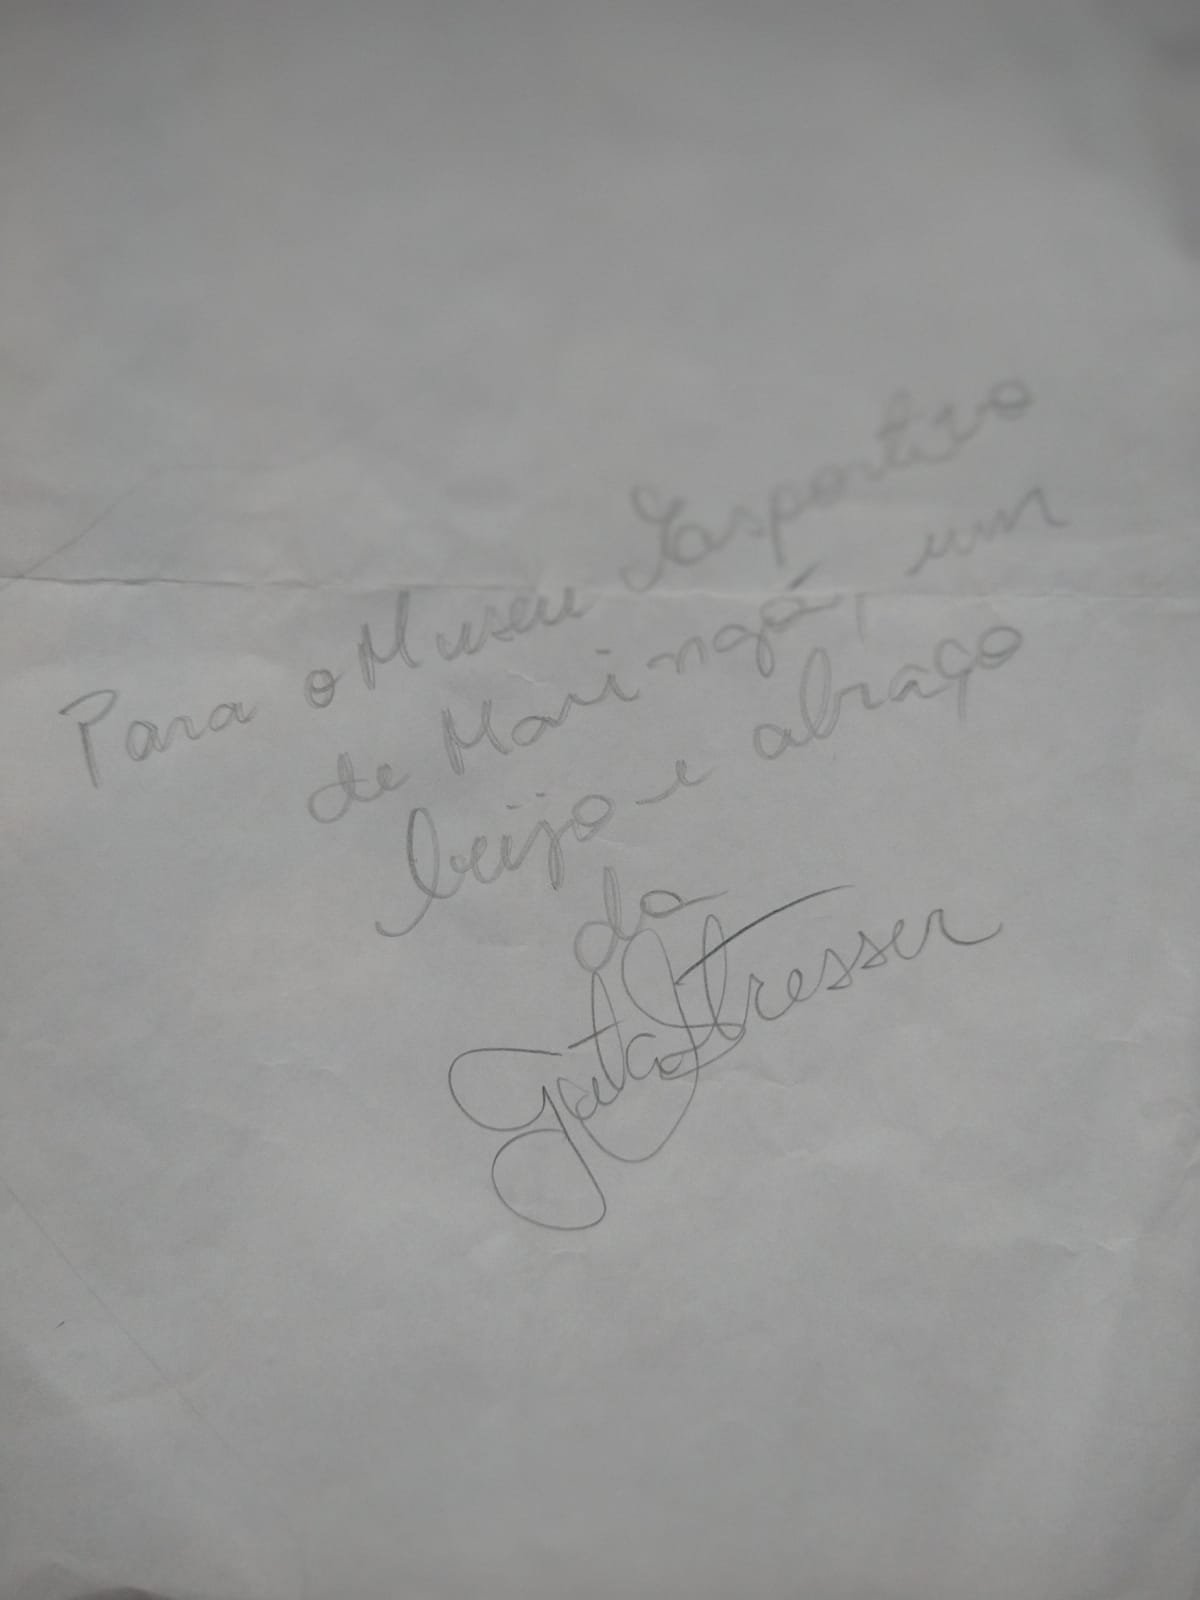 Para o Museu Esportivo
de Maringá, um
beijo e abraço
da
Guta Stresser